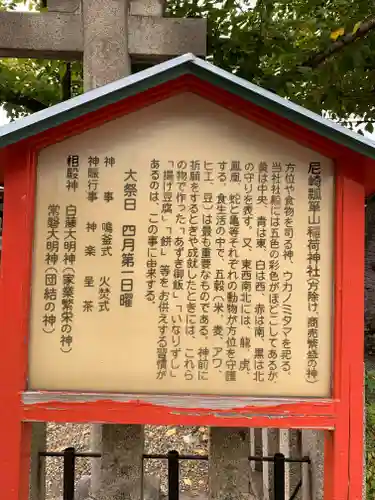 尼崎瓢箪山稲荷神社(方除け、商売繁盛の神)
方位や食物を司る神、ウカノミタマを祀る。
当社社船には五色の彩色がほどこしてあるが
黄は中央、青は東、白は西、赤は南、黒は北
の守りを表す。又、東西南北には、龍、虎、
鳳凰、蛇と亀等それぞれの動物が方位を守護
する。食生活の中で、五穀(米、麦、アワ、
ヒエ、豆)は最も重要なものである。神前に
祈願をするときや成就したときには、これら
の物で作った「あずき御飯」「いなりずし」
「揚げ豆腐」「餅」等をお供えする習慣が
あるのは、この事に由来する。
大祭日 四月第一日曜
神事 鳴釜式 火焚式
神賑行事 神楽 呈茶
相殿神 白藤大明神(家業繁栄の神)
常磐大明神(団結の神)